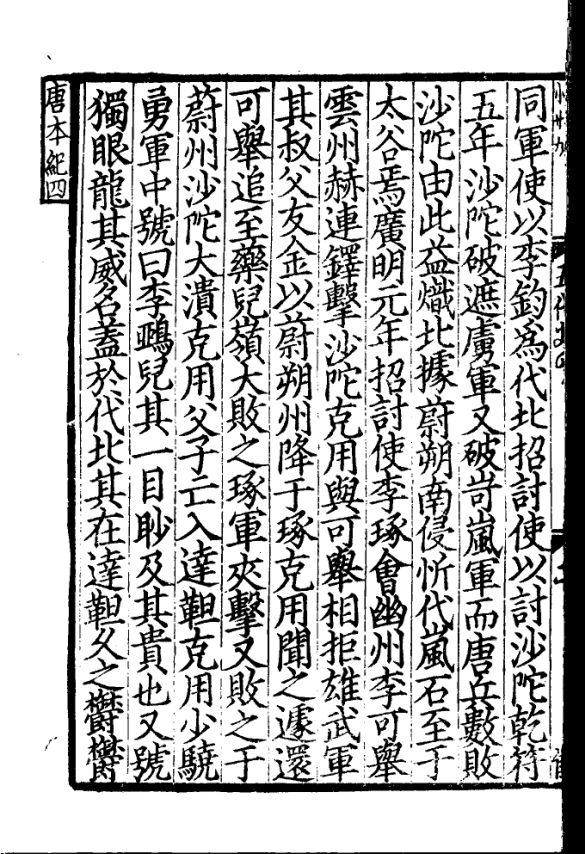 同軍使以李鈞爲代北招討使以討沙陀乾符
五年沙陀破遮虜軍又破岢嵐軍而唐兵數敗
沙陀由此益熾北據蔚朔南侵忻代嵐石至于
太谷焉廣明元年招討使李琢會幽州李可舉
雲州赫連鐸擊沙陀克用與可舉相拒雄武軍
其叔父友金以蔚朔州降于琢克用聞之遽還
可舉追至藥兒嶺大敗之琢軍夾擊又敗之于
蔚州沙陀大潰克用父子亡入達靼克用少驍
勇軍中號曰李鵶兒其一目眇及其貴也又號
獨眼龍其威名蓋於代北其在達靼久之鬱鬱
唐本紀四